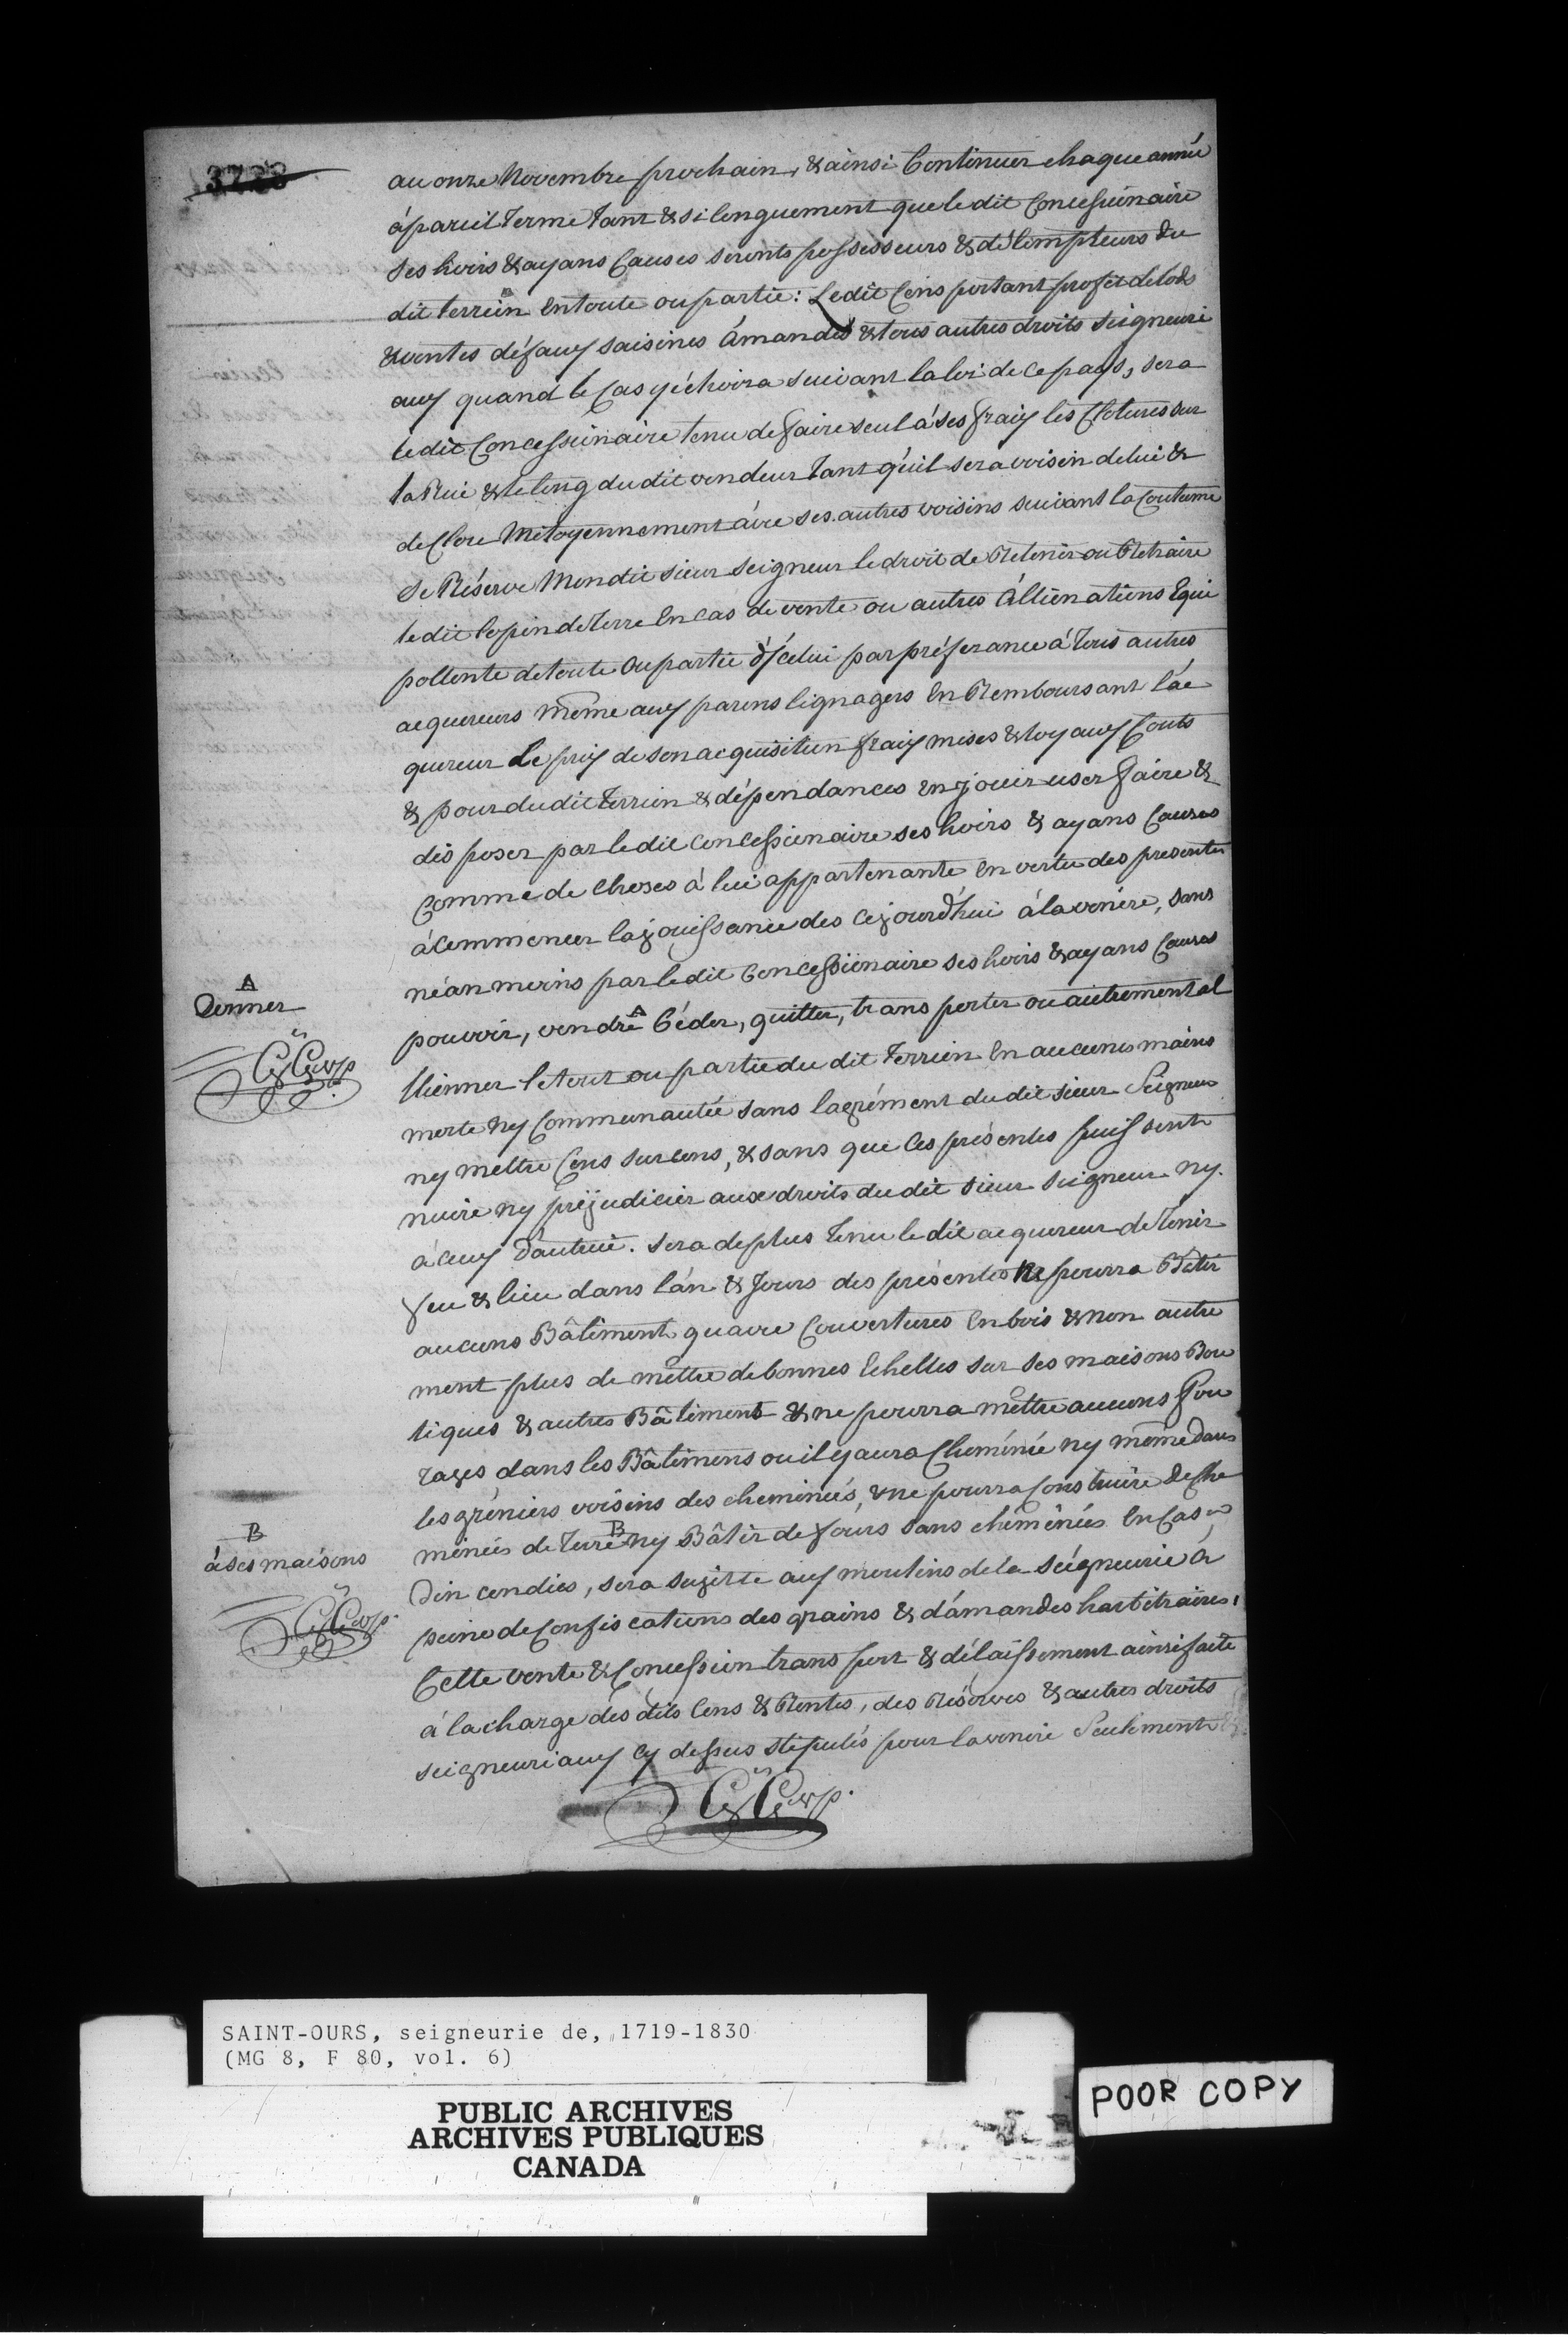 3728
au onze Novembre prochain, & ainsi Continuer chaque année
à pareil terme tant & si longuement que le dit Concessiónaire
ses hoirs & ayans Causes seronts possesseurs & détempteurs du
dit terrein en toute ou partie: Le dit Cens portant profit de lods
& ventes défaux saisines àmandes & tous autres droits seigneuri
aux quand le Cas y échoira suivant la loi de ce pays, sera
le dit Concessiónaire tenu de faire seul à ses fraix les Clotures sur
la Rue & le long du dit vendeur tant qúil sera voisin de lui &
de Clore Mitoyennement avec ses autres voisins suivant la Coutume
se Réserve Mon dit sieur seigneur le droit de Retenir ou Retraire
le dit lopin de terre en Cas de vente ou autres Alliénations Equi
pollente de toute ou partie d'jcelui par préferance à tous autres
acquereurs même aux parens lignagers en Remboursant l'ac
quereur Le prix de son acquisition fraix mises & loyaux Couts
& pour du dit terrein & dépendances en jouir user faire &
disposer par le dit Concessionaire ses hoirs & ayans Causes
Comme de choses à lui appartenante en vertu des presentes
à Commencer la jouissance des cejourd'hui à l'avenire, sans
néanmoins par le dit Concessiónaire ses hoirs & ayans Causes
pouvoir, vendre A Céder, quitter, transporter ou autrement al
A
Donner
liénner le tout ou partie du dit terrein en aucunes mains
morte ny Communautée sans l'agrément du dit sieur Seigneur
ny mettre Cens sur cens, & sans que les présentes puissent
nuire ny préjudicier aux droits du dit sieur seigneur ny
à ceux d'autrui. sera de plus tenu le dit acquereur de tenir
feu & lieu dans l'an & Jours des présentes Ne pourra Bâtir
aucuns Bâtiment qu'avec Couvertures en bois & non autre
ment plus de mettre de bonnes Echelles sur ses maisons Bou
tiques & autres Bâtiments & ne pourra mettre aucuns fou
rages dans les Bâtimens ou il y aura Cheminée ny même dans
les gréniers voisins des cheminées, & ne pourra Construire de Che
minées de terre B ny Bâtir de fours sans cheminées en Cas
B
à ses maisons
d'incendies, sera sujette aux moulins de la seigneurie à
peine de Confiscations des grains & d'amandes harbitraires,
Cette vente & Concession transport & délaissement ainsi faite
à la charge des dits Cens & Rentes, des Réserves & autres droits
seigneuriaux cy dessus stipulés pour l'avenire Seulement
SAINT-OURS, seigneurie de, 1719-1830
(MG 8, F 80, vol. 6)
PUBLIC ARCHIVES
ARCHIVES PUBLIQUES
CANADA
POOR COPY